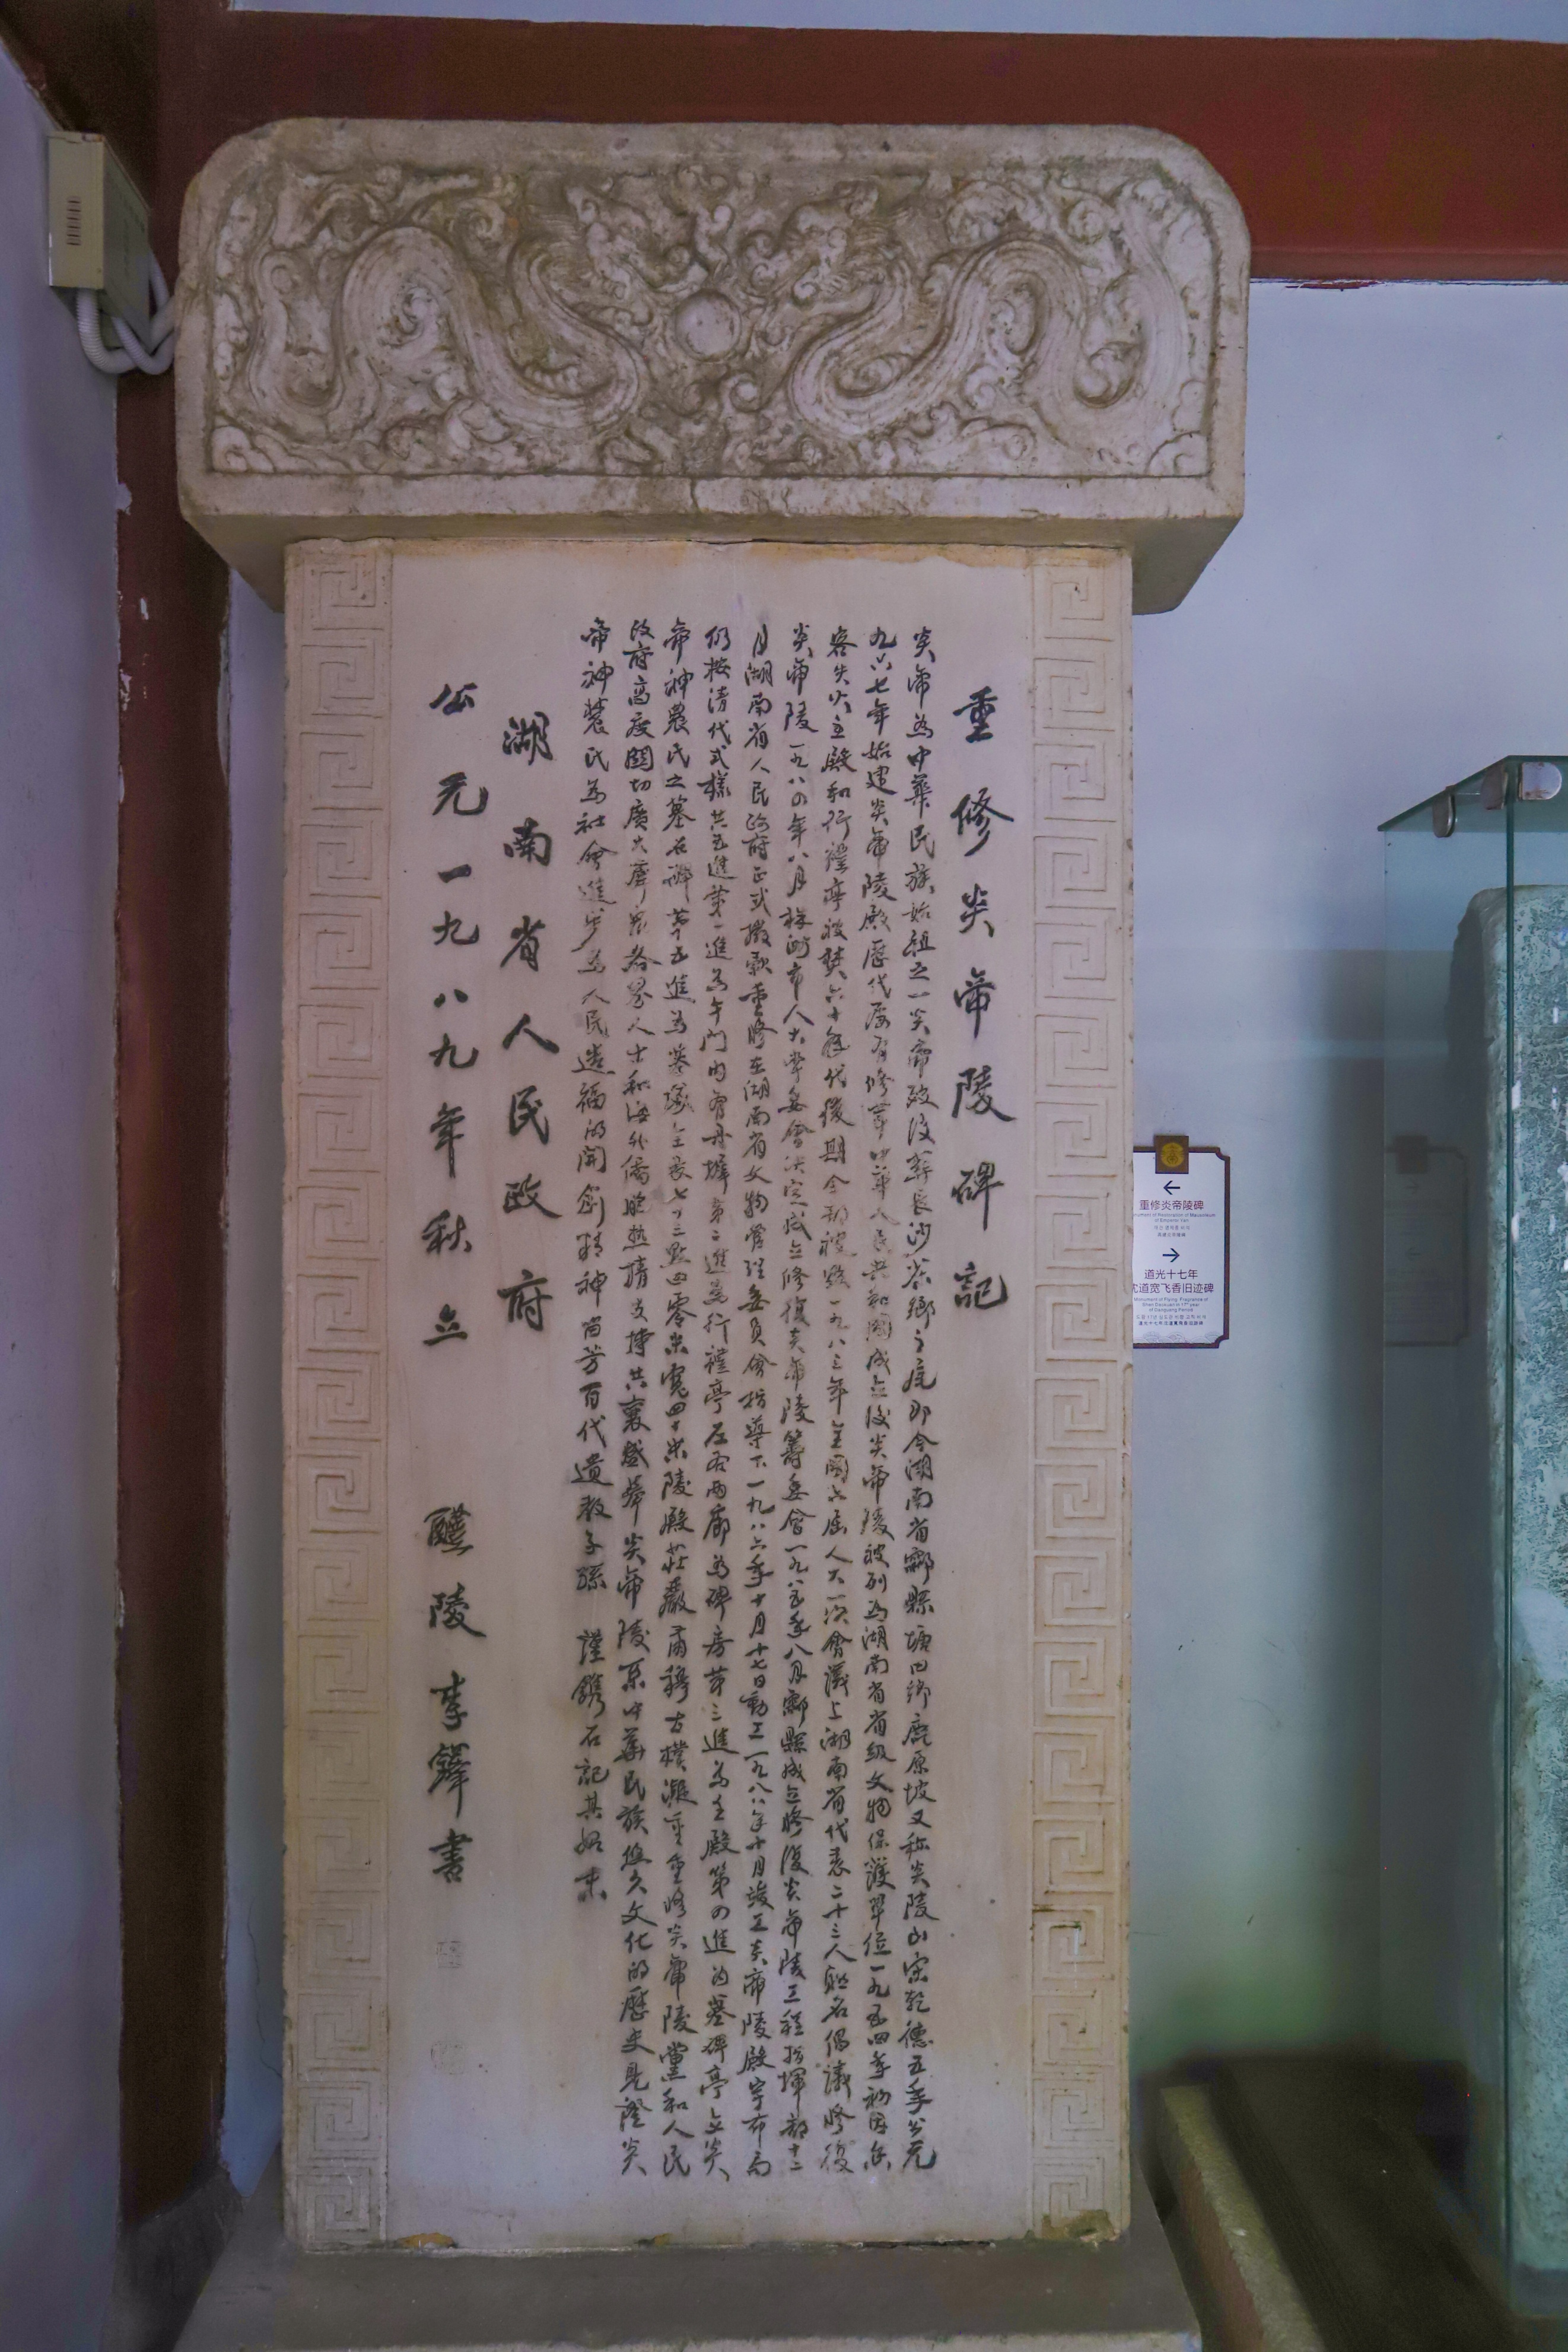 重修炎帝陵碑記
炎帝為中華民族始祖之一炎帝歿後葬長沙茶鄉之尾即今湖南省酃縣塘田鄉鹿原坡又稱炎陵山宋乾德五年公元
九六七年始建炎帝陵殿歷代屢有修葺中華人民共和國成立後炎帝陵被列為湖南省省級文物保護單位一九五四年初因香
客失火主殿和行禮亭被焚六十年代後期全部被毀一九八三年全國六屆人大一次會議上湖南省代表二十三人聯名倡議修復
炎帝陵一九八四年八月株洲市人大常委會決定成立修復炎帝陵籌委會一九八五年八月酃縣成立修復炎帝陵工程指揮部十二
月湖南省人民政府正式撥款重修在湖南省文物管理委員會指導下一九八六年十月十七日動工一九八八年十月竣工炎帝陵殿宇布局
仍按清代式樣共五進第一進為午門內有丹墀第二進為行禮亭左右兩廊為碑房第三進為主殿第四進為墓碑亭立炎
帝神農氏之墓石碑第五進為墓塚全長七十三點四零米寬四十米陵殿莊嚴肅穆古樸凝重重修炎帝陵黨和人民
政府高度關切廣大羣眾各界人士和海外僑胞熱情支持共襄盛舉炎帝陵系中華民族悠久文化的歷史見證炎
帝神農氏為社會進步為人民造福的開創精神當芳百代遺教子孫 謹鐫石記其始末
湖南省人民政府
公元一九八九年秋立 醴陵李鐸書
重修炎帝陵碑
道光十七年
沈道宽飞香旧迹碑